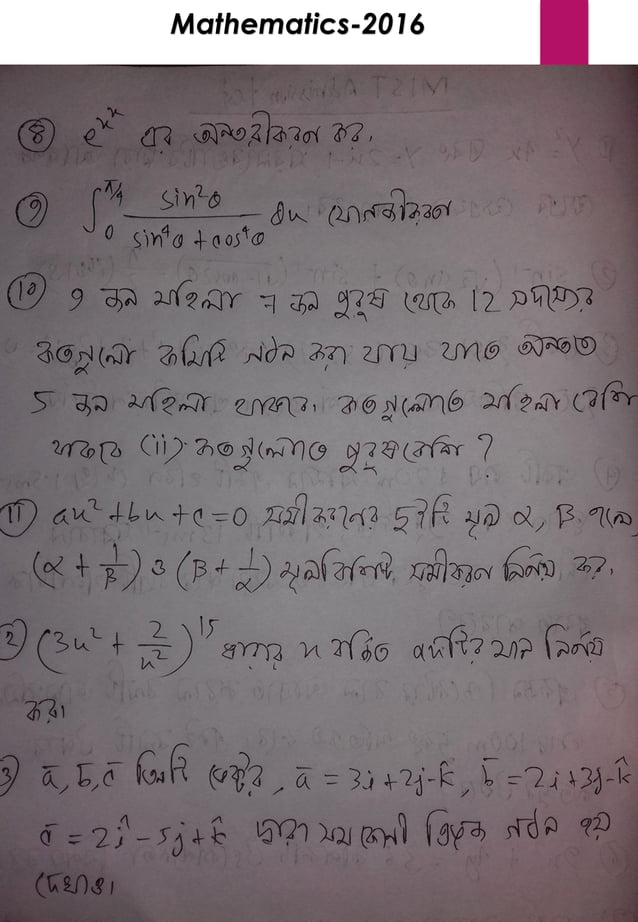 Mathematics-2016
(8) e^x^x এর অন্তরীকরণ কর,
(9) ∫_0^π/4 sin²θ / (sin⁴θ + cos⁴θ) dx যোগজীকরণ
(10) 9 জন মহিলা 7 জন পুরুষ থেকে 12 সদস্যের
কতগুলো কমিটি গঠন করা যায় যাতে অন্তত
5 জন মহিলা থাকবে, কতগুলোতে মহিলা বেশি
থাকবে (ii) কতগুলোতে পুরুষ বেশি ?
(11) ax² + bx + c = 0 সমীকরণের দুইটি মূল α, β হলে
(α + 1/β) ও (β + 1/α) মূলবিশিষ্ট সমীকরণ নির্ণয় কর,
2) (3x² + 2/x²)^15 ধারার x বর্জিত পদটির মান নির্ণয়
কর।
3) ā, b̄, c̄ তিনটি ভেক্টর, ā = 3i + 2j - k̂, b̄ = 2i + 3j - k̂
c̄ = 2î - 5j + k̂ দ্বারা সমকোণী ত্রিভুজ গঠন হয়
দেখাও।